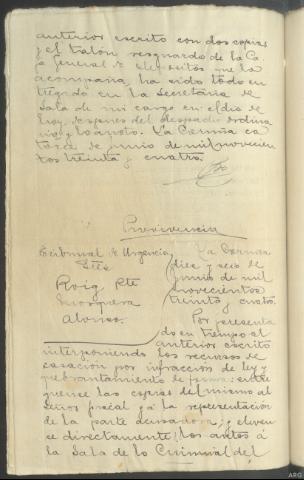 anterior escrito con dos copias
y el talón resguardo de la Ca
ja general de depósitos que lo
acompaña, ha sido todo en
tregado en la Secretaría de
Sala de mi cargo en el dia de
hoy, despues del despacho ordina
rio y lo anoto. La Coruña ca
torce de junio de mil novecien
tos treinta y cuatro.
Providencia
Tribunal de Urgencia
Sres
Roig Pte
Mosquera
Alonso.
La Coruña
diez y seis de
junio de mil
novecientos
treinta y cuatro.
Por presenta
do en tiempo el
anterior escrito
interponiendo los recursos de
casación por infracción de ley y
quebrantamiento de forma: entre
guense las copias del mismo al
señor fiscal y a la representación
de la parte acusadora; y eleven
se directamente los autos á
la Sala de lo Criminal del